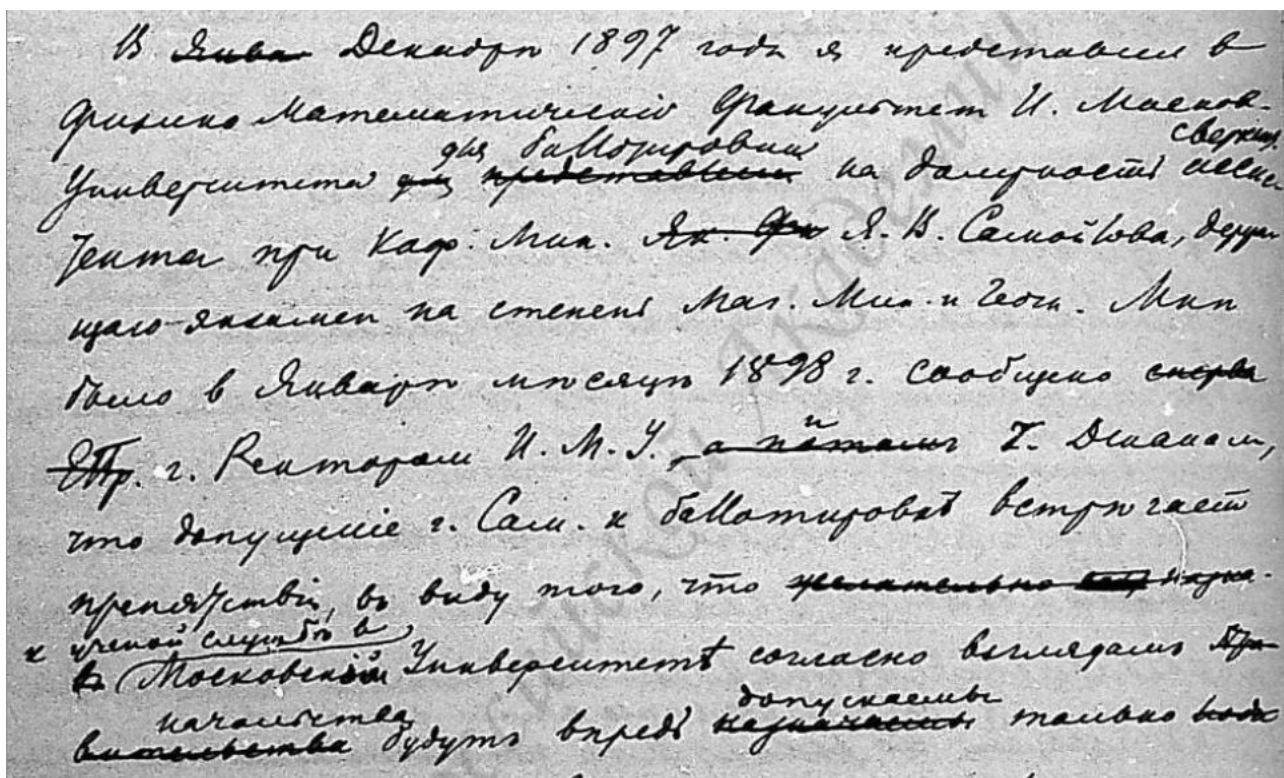 В Янва Декабрѣ 1897 года я представил в
Физико Математическій Факультет И. Москов-
для баллотировки сверхш.
Университета для представил на должность ассис
тента при Каф. Мин. Як. Я. В. Самойлова, держа
щаго экзамен на степень Маг. Мин. и Геогн. Мнѣ
было в Январѣ мѣсяцѣ 1898 г. сообщено сперва
г. Ректором И. М. У., а потомъ и Г. Деканом,
что допущеніе г. Сам. к баллотировкѣ встрѣчает
препятствія, въ виду того, что желательно
к ученой службѣ в
в Московском Университетѣ согласно взглядамъ Пра
начальства допускаемы
вительства будутъ впредь назначаемы только